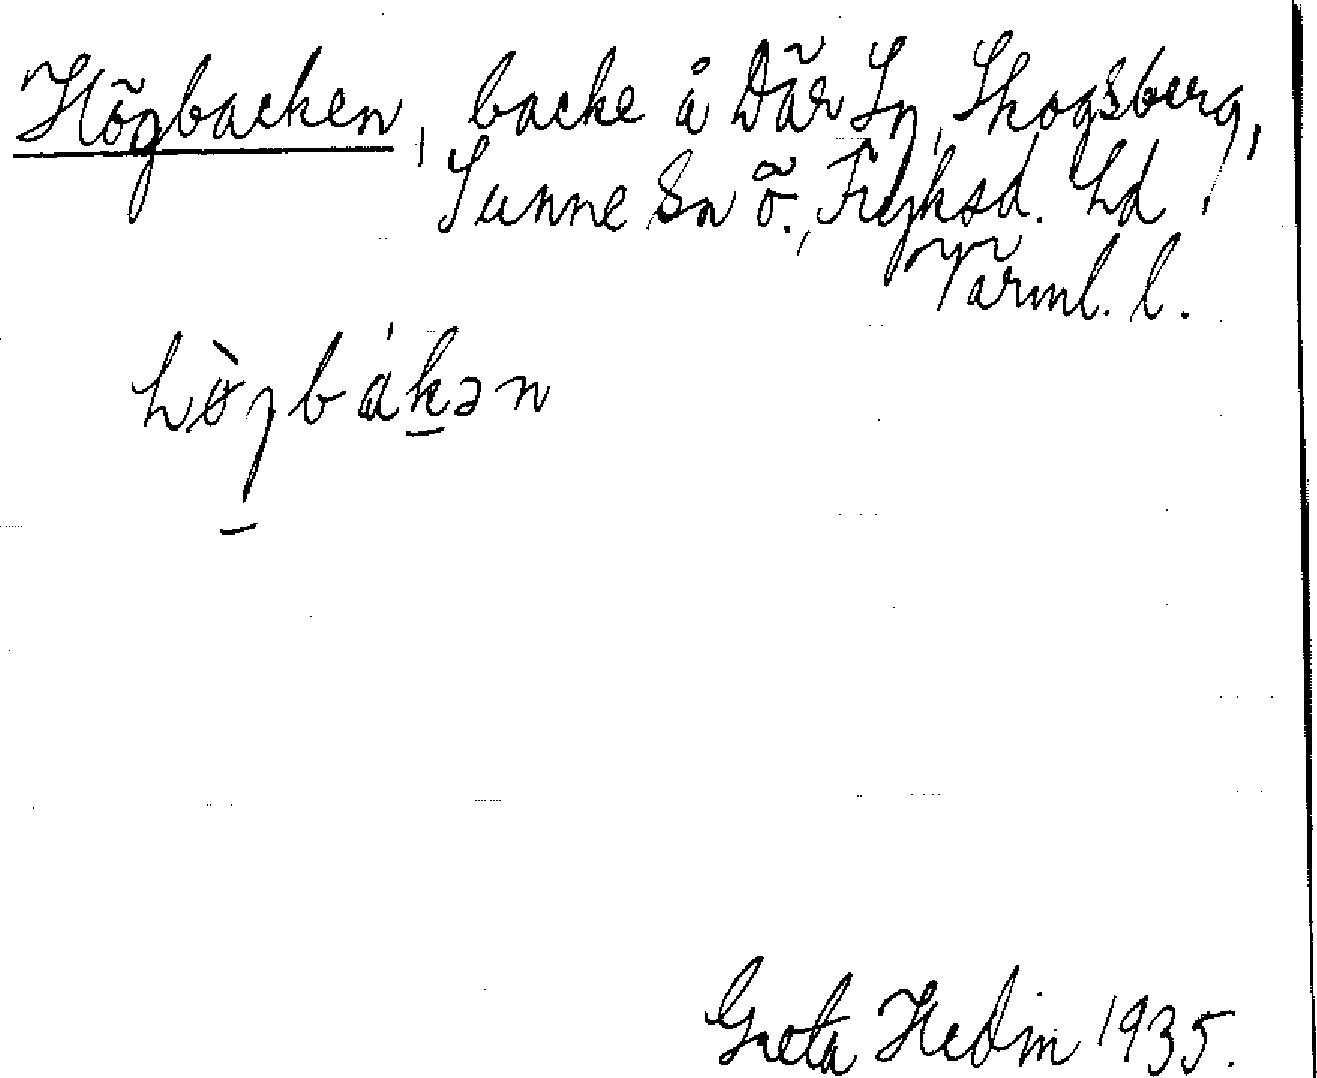 Högbacken, backe å Där Sn, Skogsberg,
Sunne Sn ö., Fryksd. hd
Värml. l.
hø̀gbákən
Greta Hedin 1935.